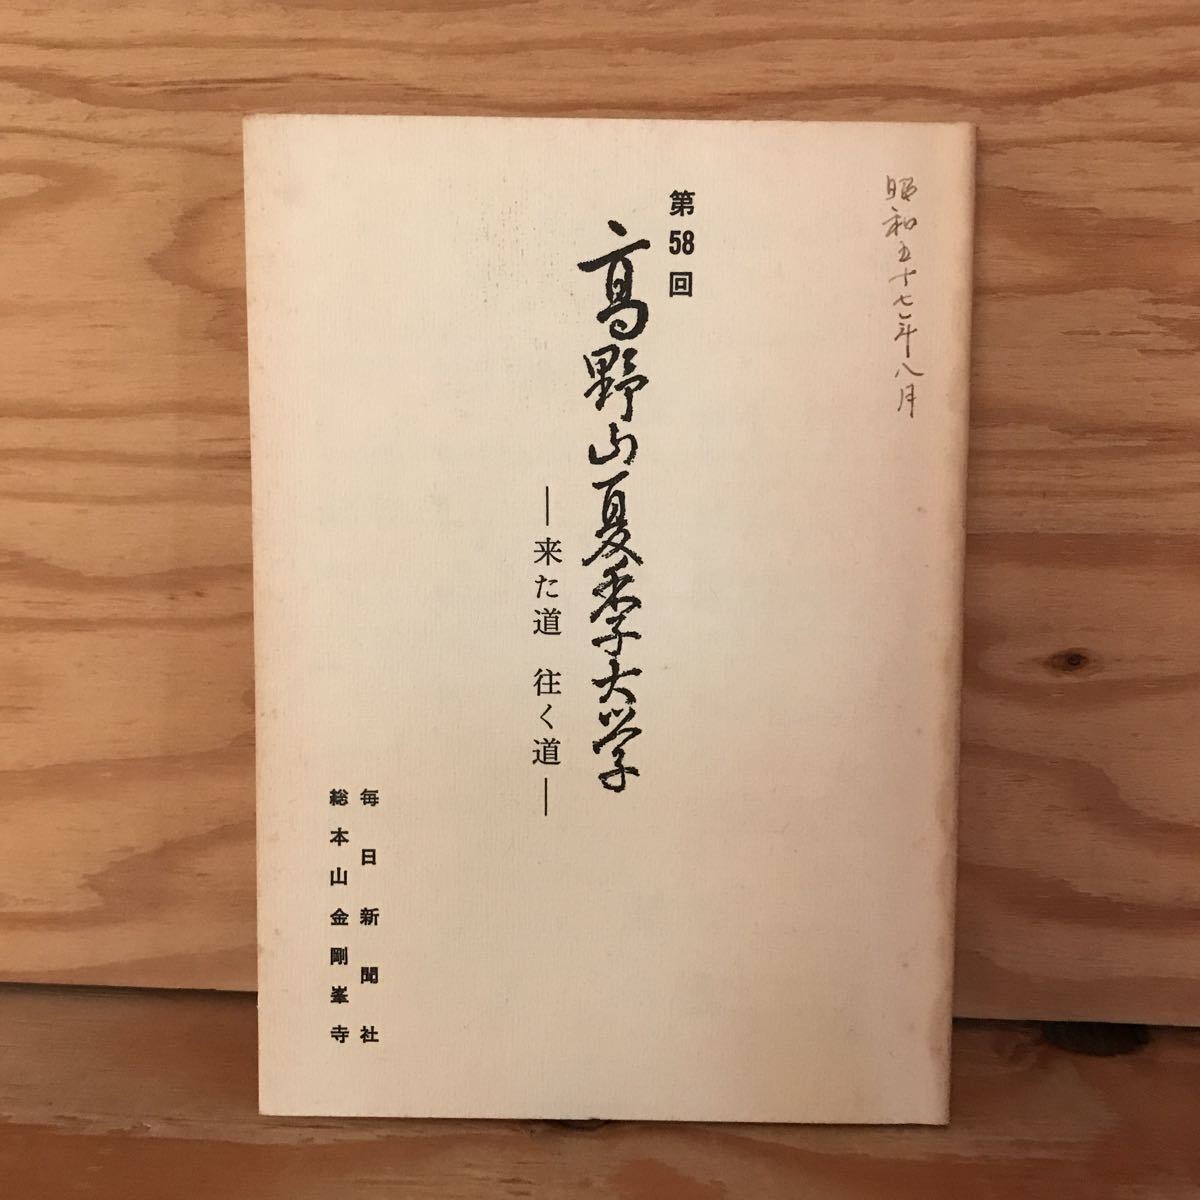 昭和五十七年八月
第58回
高野山夏季大学
―来た道 往く道―
毎日新聞社
総本山金剛峯寺